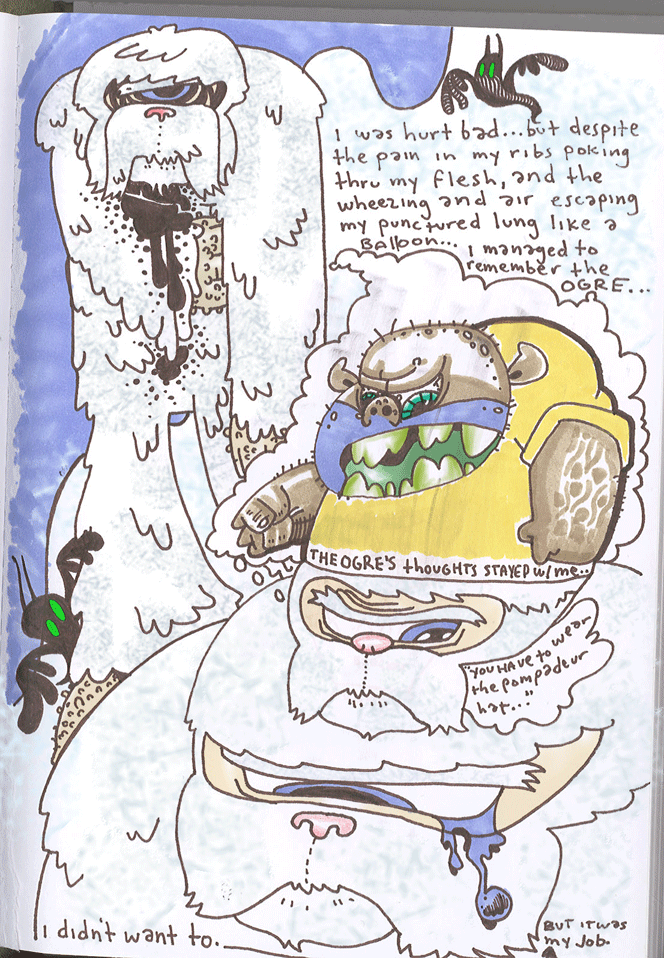 I was hurt bad...but despite
the pain in my ribs poking
thru my flesh, and the
wheezing and air escaping
my punctured lung like a
Balloon...
I managed to
remember the
OGRE...
THE OGRE'S thoughts STAYED w/ me..
"YOU HAVE to wear
the pompadeur
hat..."
I didn't want to.
BUT IT WAS
my JOB.